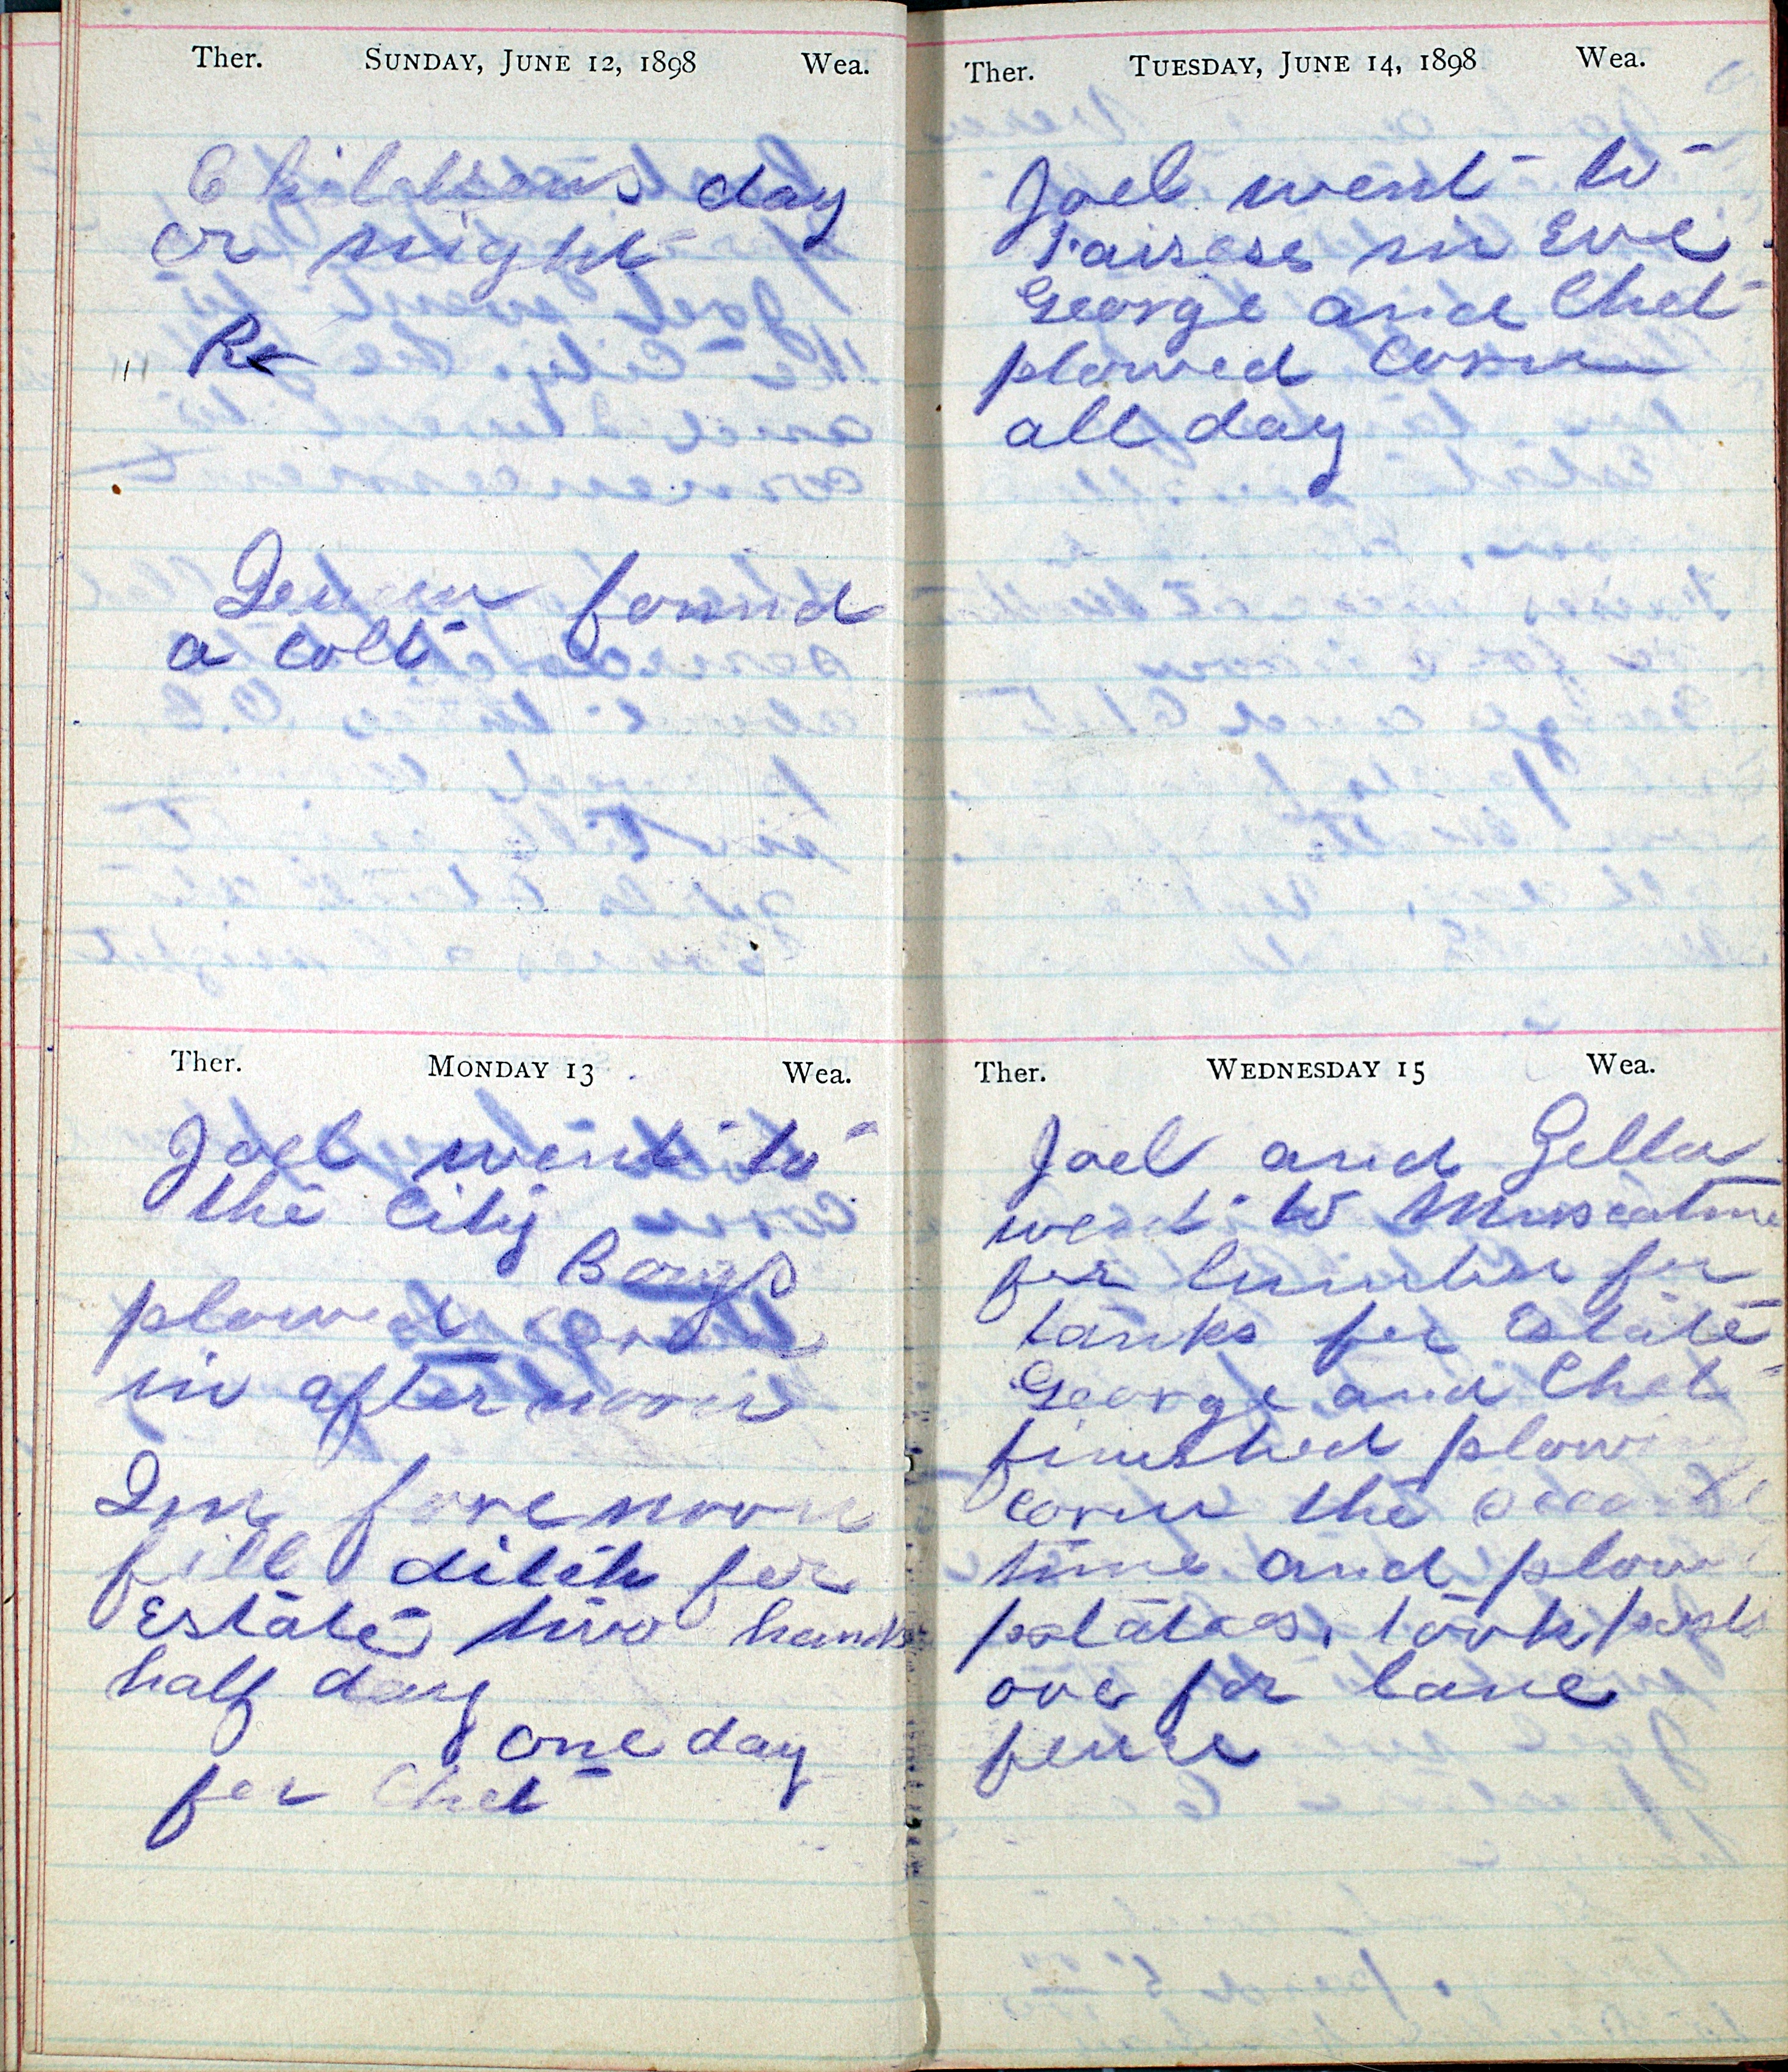 Ther. Sunday, June 12, 1898 Wea.
Childrens day
or night
Re
found
a colt
Monday 13
Ther. Wea.
Joel went to
the City
Boys
plowed corn
in after noon
In fore noon
fill ditch for
Estate two hands
half day
one day
for Chet
Ther. Tuesday, June 14, 1898 Wea.
Joel went to
in Eve
George and Chet
plowed Corn
all day
Ther. Wednesday 15 Wea.
Joel and Zella
went to Muscatine
for lumber for
tanks for Estate
George and Chet
finished plowing
Corn the second
time and plow
potatoes, took posts
ove for lane
fence